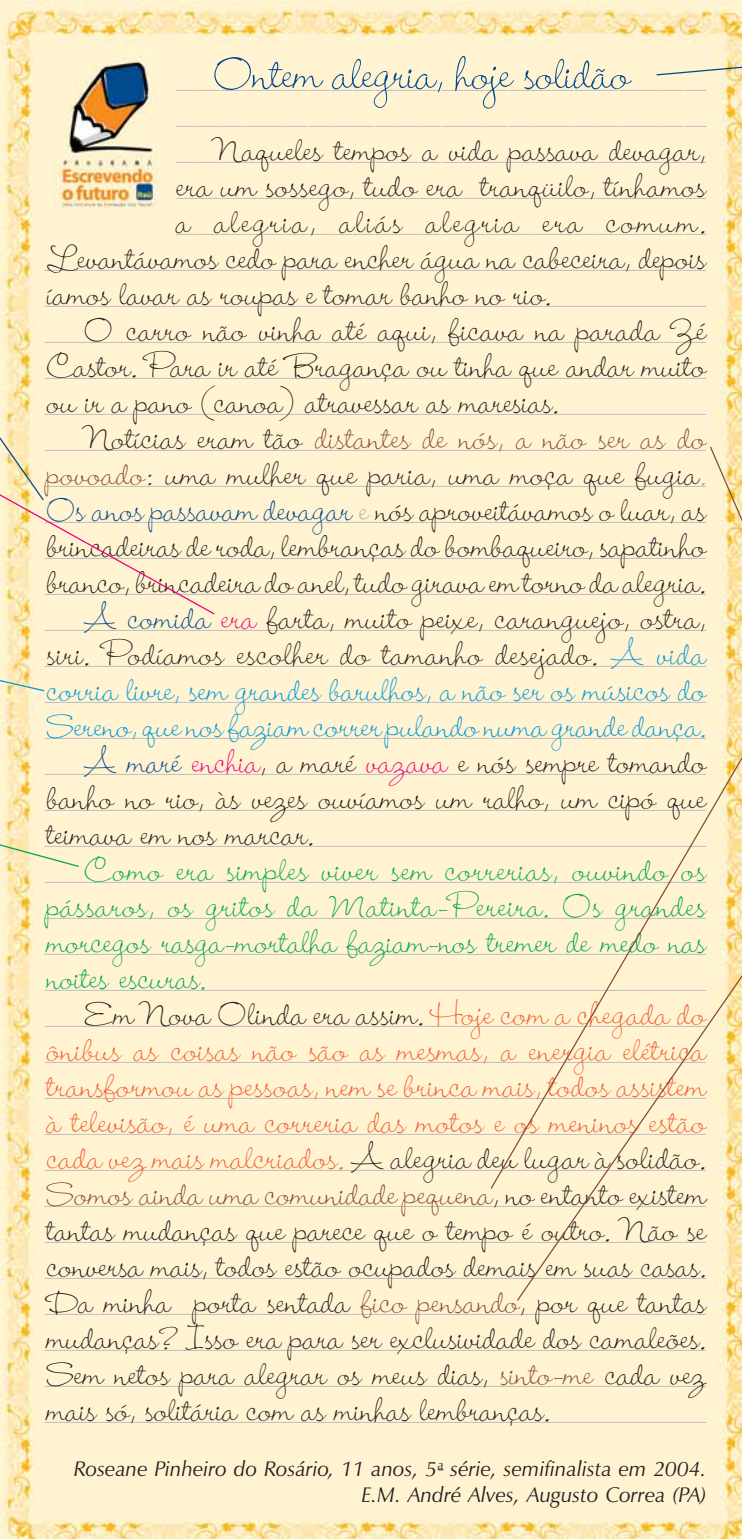 Ontem alegria, hoje solidão
PROGRAMA
Escrevendo
o futuro
Itaú
Naqueles tempos a vida passava devagar,
era um sossego, tudo era tranqüilo, tínhamos
a alegria, aliás alegria era comum.
Levantávamos cedo para encher água na cabeceira, depois
íamos lavar as roupas e tomar banho no rio.
O carro não vinha até aqui, ficava na parada Zé
Castor. Para ir até Bragança ou tinha que andar muito
ou ir a pano (canoa) atravessar as maresias.
Notícias eram tão distantes de nós, a não ser as do
povoado: uma mulher que paria, uma moça que fugia.
Os anos passavam devagar e nós aproveitávamos o luar, as
brincadeiras de roda, lembranças do bombaqueiro, sapatinho
branco, brincadeira do anel, tudo girava em torno da alegria.
A comida era farta, muito peixe, caranguejo, ostra,
siri. Podíamos escolher do tamanho desejado. A vida
corria livre, sem grandes barulhos, a não ser os músicos do
Sereno, que nos faziam correr pulando numa grande dança.
A maré enchia, a maré vazava e nós sempre tomando
banho no rio, às vezes ouvíamos um ralho, um cipó que
teimava em nos marcar.
Como era simples viver sem correrias, ouvindo os
pássaros, os gritos da Matinta-Pereira. Os grandes
morcegos rasga-mortalha faziam-nos tremer de medo nas
noites escuras.
Em Nova Olinda era assim. Hoje com a chegada do
ônibus as coisas não são as mesmas, a energia elétrica
transformou as pessoas, nem se brinca mais, todos assistem
à televisão, é uma correria das motos e os meninos estão
cada vez mais malcriados. A alegria deu lugar à solidão.
Somos ainda uma comunidade pequena, no entanto existem
tantas mudanças que parece que o tempo é outro. Não se
conversa mais, todos estão ocupados demais em suas casas.
Da minha porta sentada fico pensando, por que tantas
mudanças? Isso era para ser exclusividade dos camaleões.
Sem netos para alegrar os meus dias, sinto-me cada vez
mais só, solitária com as minhas lembranças.
Roseane Pinheiro do Rosário, 11 anos, 5ª série, semifinalista em 2004.
E.M. André Alves, Augusto Correa (PA)